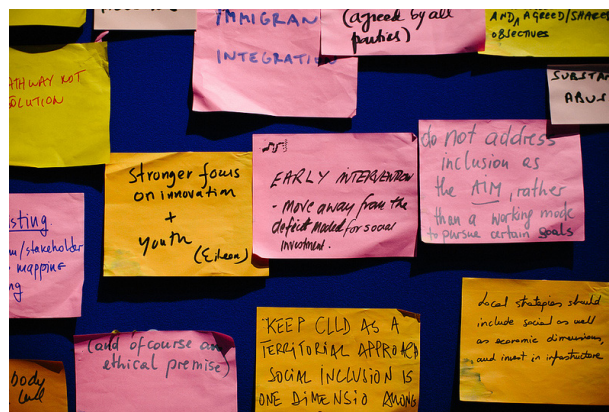 IMMIGRAN
INTEGRATION
(agreed by all
parties)
AND, AGREED/SHARED
OBJECTIVES
PATHWAY NOT
SOLUTION
SUBSTAN
ABUS
Stronger focus
on innovation
+
youth
(Eileen)
EARLY INTERVENTION
- MOVE away from the
defecit model for social
investment.
do not address
inclusion as
the AIM, rather
then a working mode
to pursue certain goals
sting
m/stakeholder
mapping
ng
(and of course an
ethical premise)
body
KEEP CLLD AS A
TERRITORIAL APPROACH
SOCIAL INCLUSION IS
ONE DIMENSIO AMONG
Local strategies should
include social as well
as economic dimensions,
and invest in infrastructure